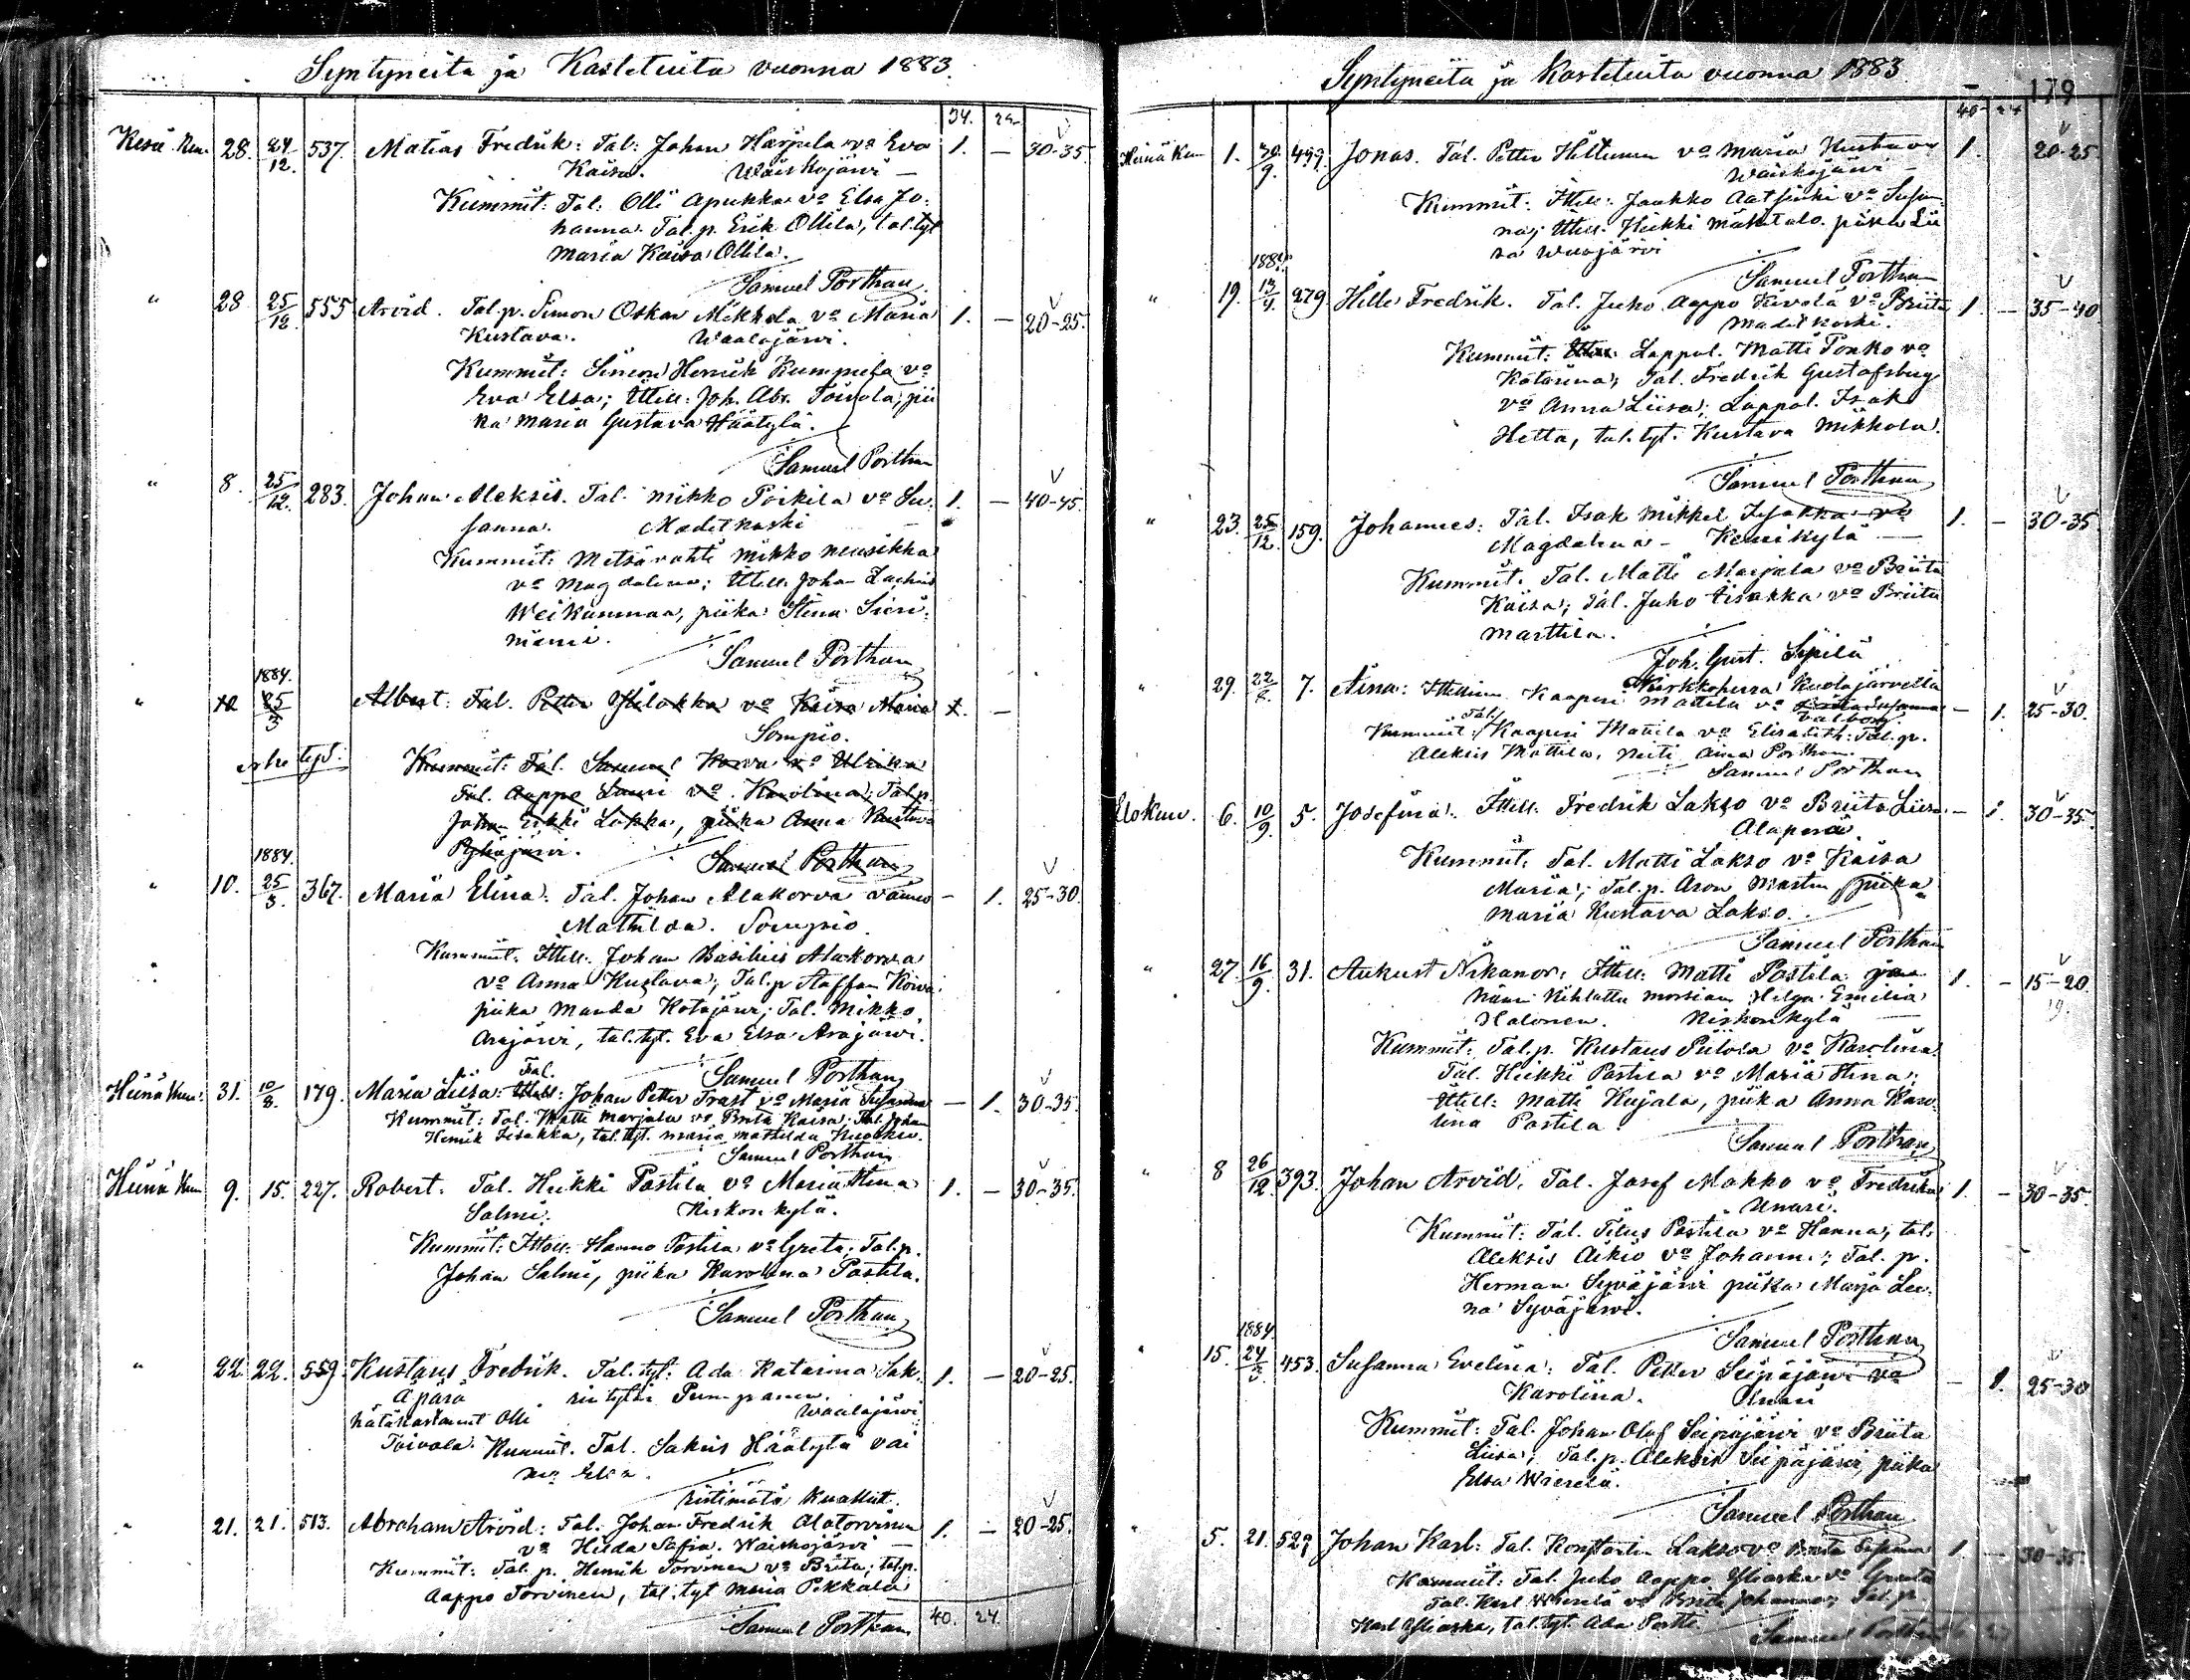 Syntyneitä ja Kastetuita vuonna 1883.
34. 22
Kesä Kuu 28. 24/12. 537. Matias Fredrik: Tal: Johan Harjula va Eva 1. — 30-35.
Kaisa. Waiskojärvi —
Kummit: Tal: Olli Apukka va Elsa Jo-
hanna. Tal.p. Erik Ollila, tal.tyt
Maria Kaisa Ollila.
Samuel Porthan.
" 28 25/12 555 Arvid. Tal.p. Simon Oskar Mikkola va Maria 1. — 20-25.
Kustava. Waalajärvi.
Kummit: Simon Henrik Kumpula va
Eva Elsa; Ittell: Joh. Abr. Toivola, pii
ka Maria Gustava Häätylä.
Samuel Porthan
" 8. 25/12. 283. Johan Aleksis. Tal. Mikko Poikila va Su- 1. — 40-45.
sanna. Madetkoski —
Kummit: Metsävahti Mikko
va Magdalena; Ittell. Johan
Weikanmaa, piika Stina Sieri-
niemi.
Samuel Porthan
1884.
" 10 25/3 Albert: Tal. Petter va Kaisa Maria 1. —
Sompio.
Kummit: Tal. Samuel va Ulrika
Tal. Aappo Lauri va Karolina; Tal.p.
Johan Erkki Lakka, piika Anna Kustava
Pyhäjärvi.
Samuel Porthan
1884.
" 10. 25/3. 367. Maria Elina: Tal. Johan Alakorva vaimo — 1. 25-30.
Mathilda. Sompio.
Kummit: Ittell. Johan Basilius Alakorva
va Anna Kustava; Tal.p Staffan
piika Manda Kotajärvi; Tal. Mikko
Arajärvi, tal.tyt. Eva Elsa Arajärvi.
Samuel Porthan
Tal.
Heinä Kuu. 31. 10/8. 179. Maria Liisa: Ittell: Johan Petter Trast va Maria Susanna — 1. 30-35.
Kummit: Tal. Matti Marjala va Brita Kaisa; Tal. Johan
Henrik Iisakka, tal.tyt. Maria Mathilda
Samuel Porthan
Heinä Kuu 9. 15. 227. Robert: Tal. Heikki Postila va Maria Stina 1. — 30-35.
Salmi. Niskonkylä.
Kummit: Ittell. Hanno Postila va Greta; Tal.p.
Johan Salmi, piika Karolina Postila.
Samuel Porthan
" 22 22. 559. Kustavus Fredrik. Tal.tyt: Ada Katarina Sak- 1. — 20-25.
Äpärä rin tytki Pumpanen.
hätäkastanut Olli Waalajärvi
Toivola. Kummit. Tal. Sakris Häätylä vai
mo Elsa.
ristimätä kuollut.
" 21. 21. 513. Abraham Arvid: Tal. Johan Fredrik Alatorvinen 1. — 20-25.
va Hilda Sofia. Waiskojärvi —
Kummit: Tal. p. Henrik Torvinen va Brita; tal.p.
Aappo Torvinen, tal.tyt Maria Pekkala
Samuel Porthan 40. 24.
Syntyneitä ja Kastetuita vuonna 1883.
179
40 24
Heinä Kuu 1. 30/9. 499. Jonas. Tal. Petter Hiltunen va Maria Kustava 1. 20-25.
Waiskojärvi —
Kummit: Ittell: Jaakko Aatsinki va Susan-
na; Ittell. Heikki Mäkitalo. piika Lii
sa Waajärvi
Samuel Porthan
" 19. 13/4 279 Fredrik. Tal. Juho Aappo va Briita 1. — 35-40
Madetkoski.
Kummit: Lappal. Matti Ponko va
Katarina; Tal. Fredrik Gustafsberg
va Anna Liisa; Lappal. Isak
Hetta, tal.tyt. Kustava Mikkola.
Samuel Porthan
" 23. 25/12. 159. Johannes: Tal. Isak Mikkel va 1. — 30-35
Magdalena — Kemikylä —
Kummit. Tal. Matti Marjala va Briita
Kaisa; Tal. Juho Iisakka va Briita
Marttila.
Joh. Gust. Sipilä
Kirkkoherra Kuolajärvellä
" 29. 22/8. 7. Aina: Ittellinen Kaaperi Mattila va — 1. 25-30.
Valborg.
Kummit: Tal. Kaaperi Mattila va Elisabeth: Tal.p.
Aleksis Mattila, neiti Aina Porthan.
Samuel Porthan
Elokuu. 6. 10/9. 5. Josefina. Ittell. Fredrik Lakso va Briita Liisa — 1. 30-35.
Alaperä.
Kummit: Tal. Matti Lakso va Kaisa
Maria; Tal.p. Aron Martin piika
Maria Kustava Lakso.
Samuel Porthan
" 27. 16/9. 31. Aukust Nikanor: Ittell: Matti Postila ja 1. — 15-20.
hänen kihlattu morsian Hilga Emilia 19.
Halonen. Niskonkylä —
Kummit: Tal.p. Kustavus Piilola va Karolina.
Tal. Heikki Postila va Maria Stina;
Ittell: Matti Kujala, piika Anna Karo-
lina Postila
Samuel Porthan
" 8 26/12. 393. Johan Arvid. Tal. Josef Mokko va Fredrika 1. — 30-35.
Unari.
Kummit: Tal. Titus Postila va Hanna, tal.
Aleksis Aikio va Johanna; Tal. p.
Herman Syväjärvi piika Marja Lee-
na Syväjärvi.
Samuel Porthan
1884.
" 15. 24/3. 453. Susanna Evelina: Tal. Petter Seipäjärvi va — 1. 25-30
Karolina. Unari
Kummit: Tal. Johan Olof Seipäjärvi va Briita
Liisa; Tal.p. Aleksis Seipäjärvi, piika
Elsa Wierelä.
Samuel Porthan
" 5. 21. 529 Johan Karl: Tal. Konstantin Lakso va 1. — 30-35
Kummit: Tal. Juho Aappo va Greeta
Tal. Karl Wierelä va Briita Johanna; Tal.p.
Karl, tal.tyt. Ada Portti.
Samuel Porthan